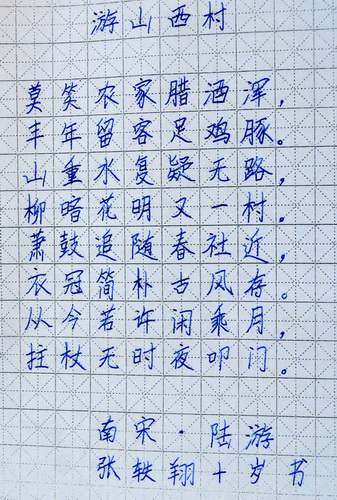 游山西村
莫笑农家腊酒浑，
丰年留客足鸡豚。
山重水复疑无路，
柳暗花明又一村。
萧鼓追随春社近，
衣冠简朴古风存。
从今若许闲乘月，
拄杖无时夜叩门。
南宋·陆游
张轶翔十岁书